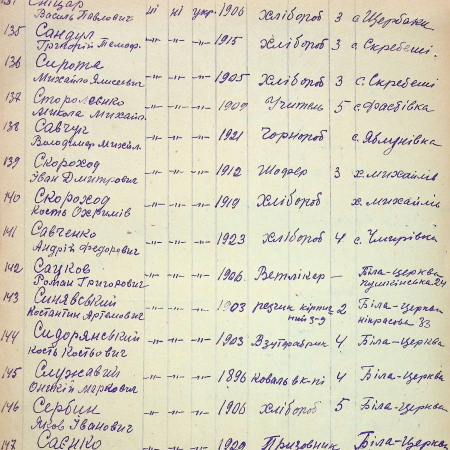 Василь Павлович ні ні укр. 1906 Хлібороб 3 с. Щербаки
135 Сандул
Григорій Тимоф. -"- -"- -"- 1915 Хлібороб 3 с. Скребеші.
136 Сирота
Михайло -"- -"- -"- 1905 Хлібороб 3 с. Скребеші
137
Микола Михайл. -"- -"- -"- Учитель 5 с. Фастівка
138 Савчук
Володимир Михайл. -"- -"- -"- 1921 Чорнороб с. Яблунівка
139 Скороход
Іван Дмитрович -"- -"- -"- 1912 Шофер 3 х. Михайлів
140 Скороход
Кость Охримів -"- -"- -"- 1919 Хлібороб х. Михайлів
141 Савченко
Андрій Федорович -"- -"- -"- 1923 Хлібороб 4 с.
142 Сацков
Роман Григорович -"- -"- -"- 1906. Ветлікер — Біла-Церква
24
143 Синявський
Костянтин Артемович -"- -"- -"- 1903 цегчик 2 Біла-Церква
33
144 Сидорянський
Кость Костьович -"- -"- -"- 1903 Взутфабрик 4 Біла-Церква
145 Служавий
Маркович -"- -"- -"- 1896 коваль в к-пі 4 Біла-Церква
146 Сербин
Яков Іванович -"- -"- -"- 1906 Хлібороб 5 Біла-Церква
147 Саєнко -"- -"- -"- Призовник Біла-Церква